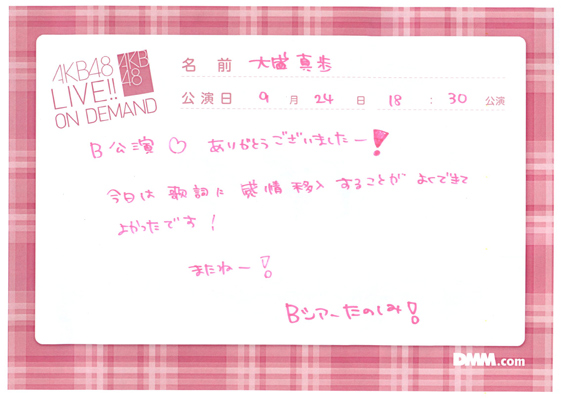 AKB48
LIVE!!
ON DEMAND
AKB
48
名前 大盛真歩
公演日 9月24日 18:30公演
B公演♡ ありがとうございましたー!
今日は 歌詞に 感情移入 することが よくできて
よかったです!
またねー!
Bツアーたのしみ!
DMM.com